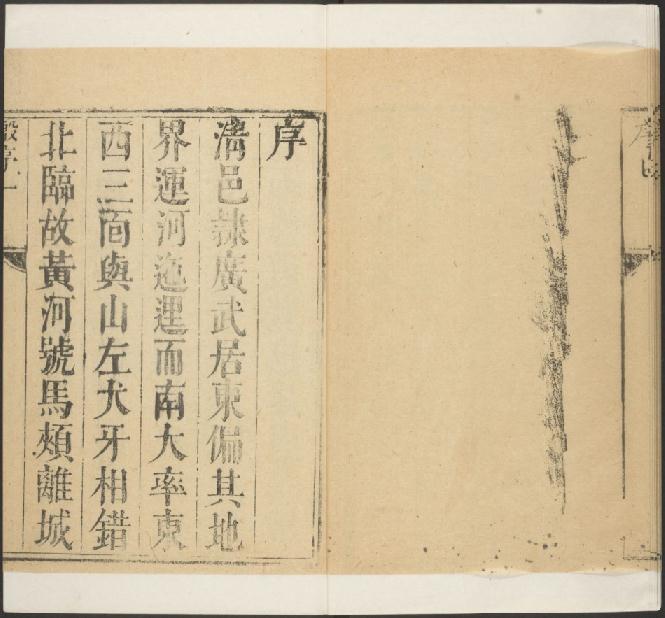 序
清邑隷廣武居東偏其地
界運河迤𨓦而南大率東
西三面與山左犬牙相錯
北臨故黃河號馬頰離城